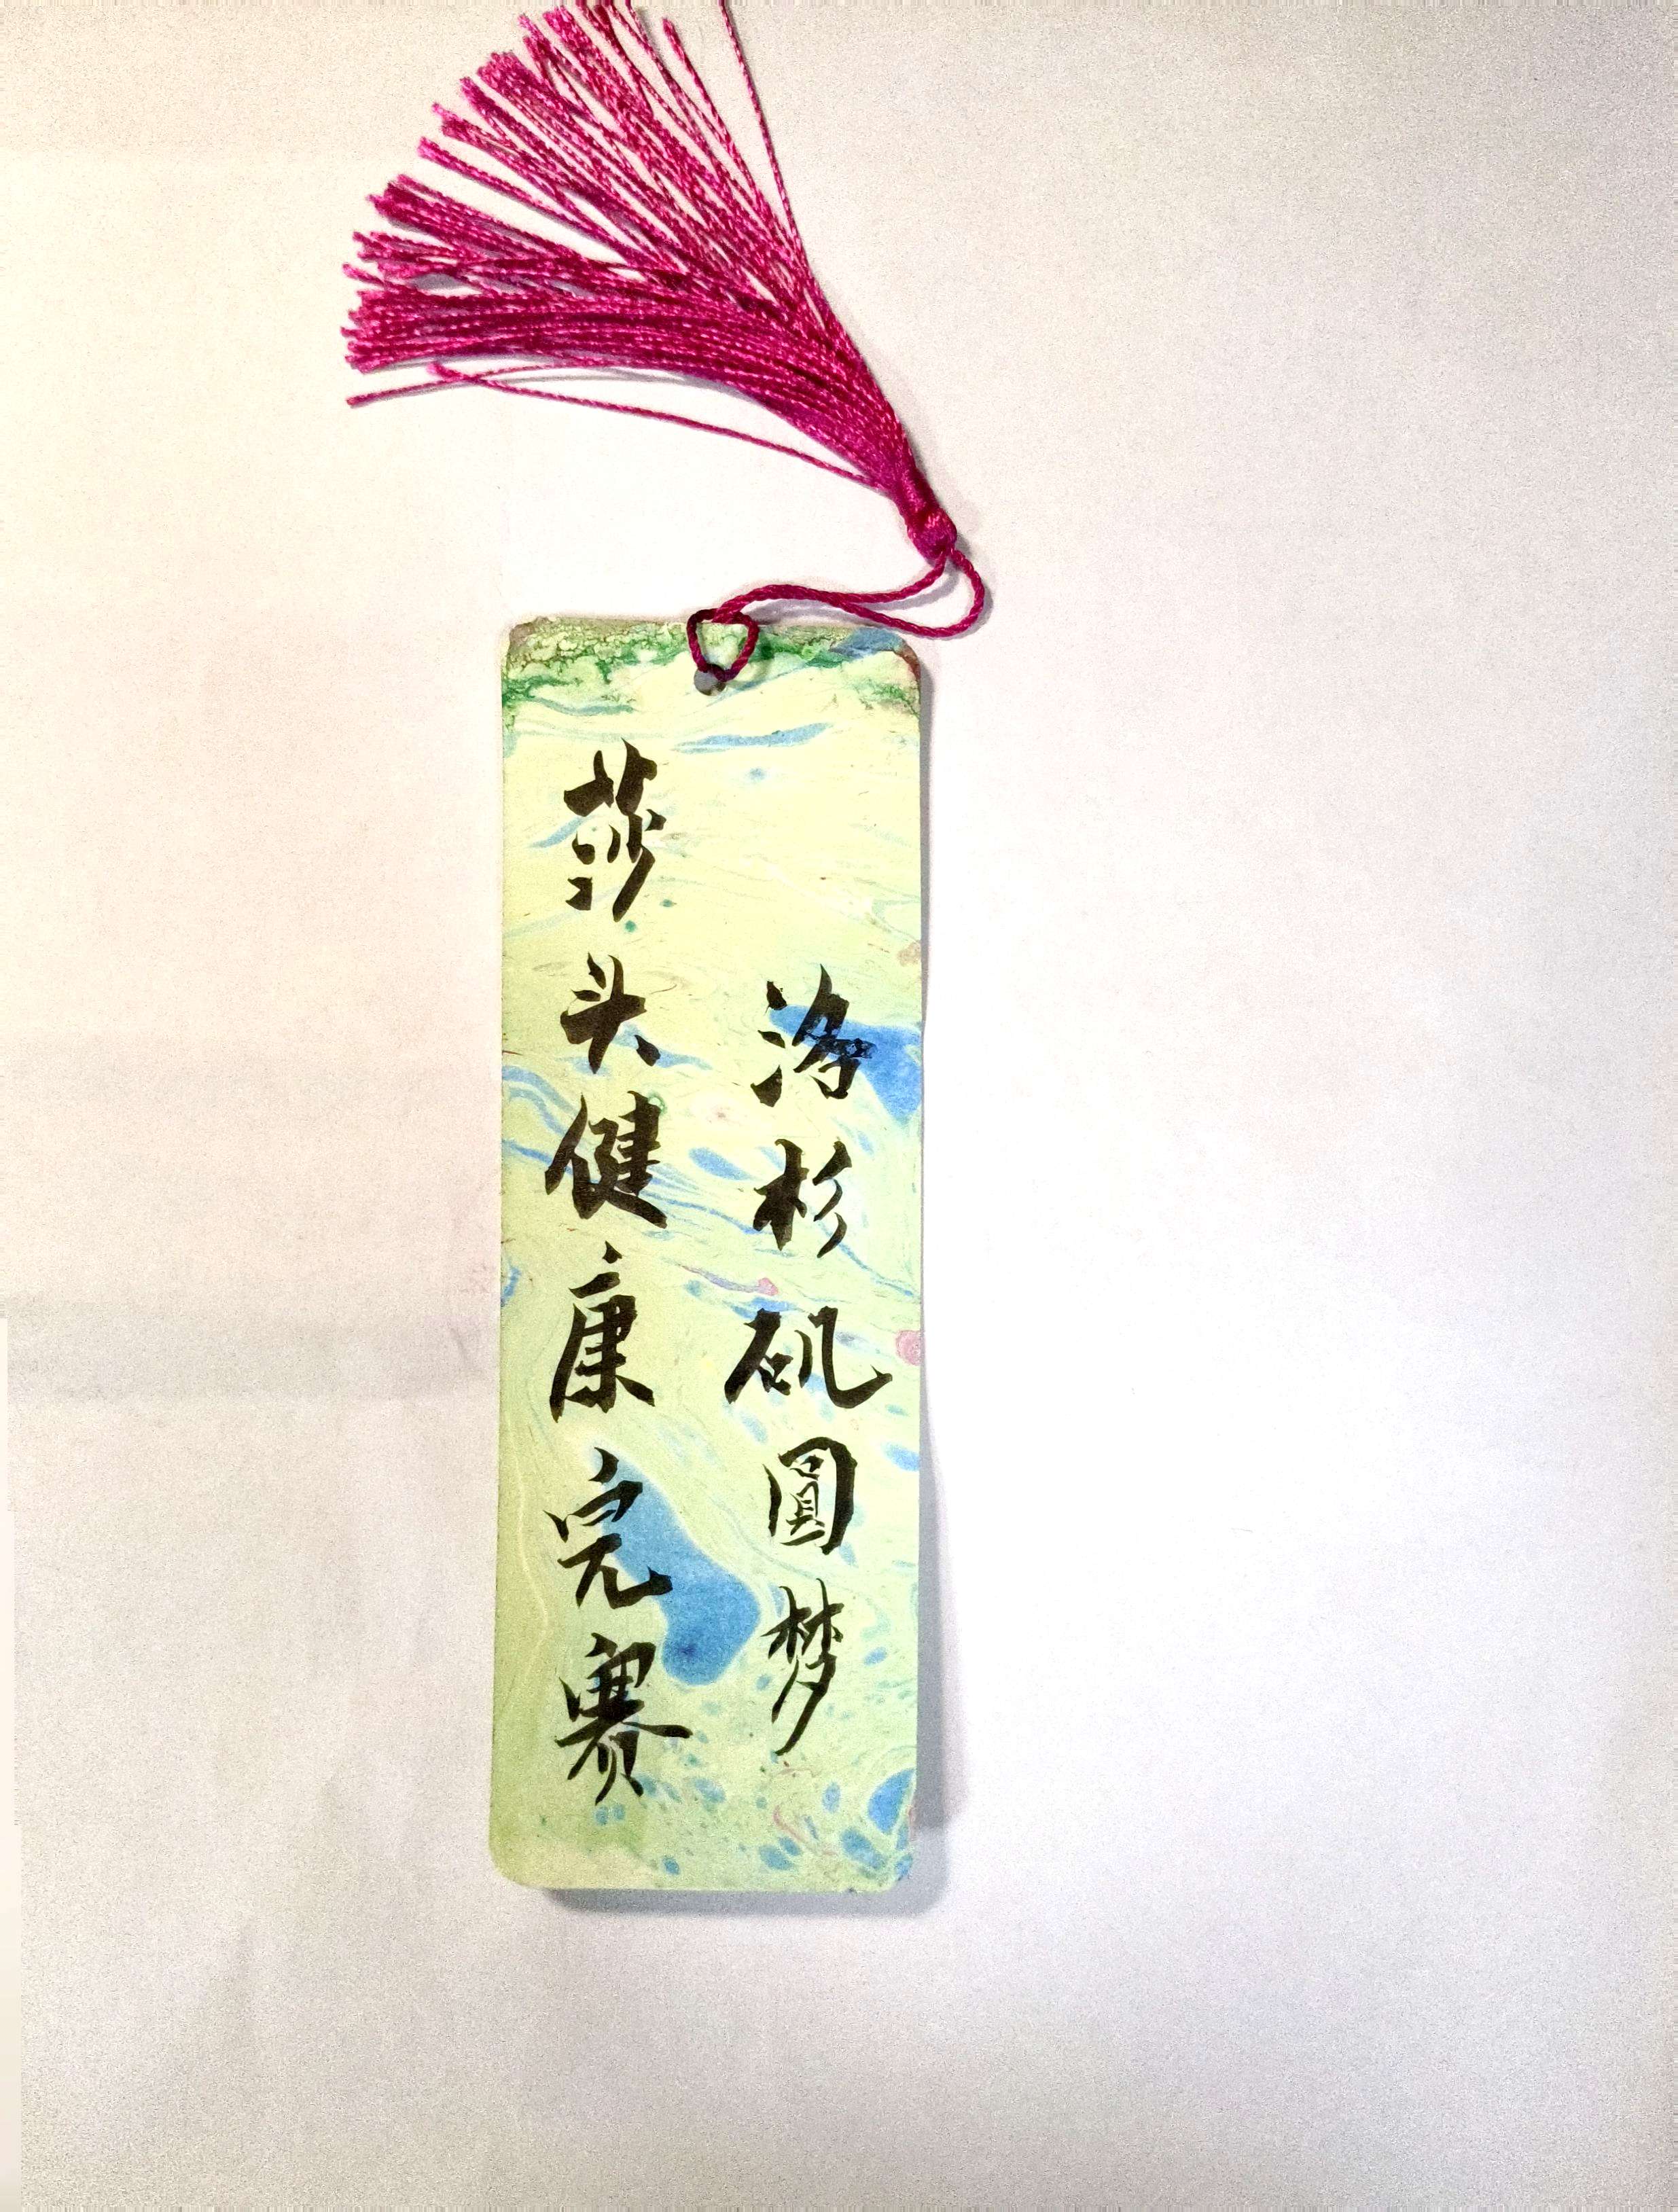 莎头健康完赛
洛杉矶圓梦